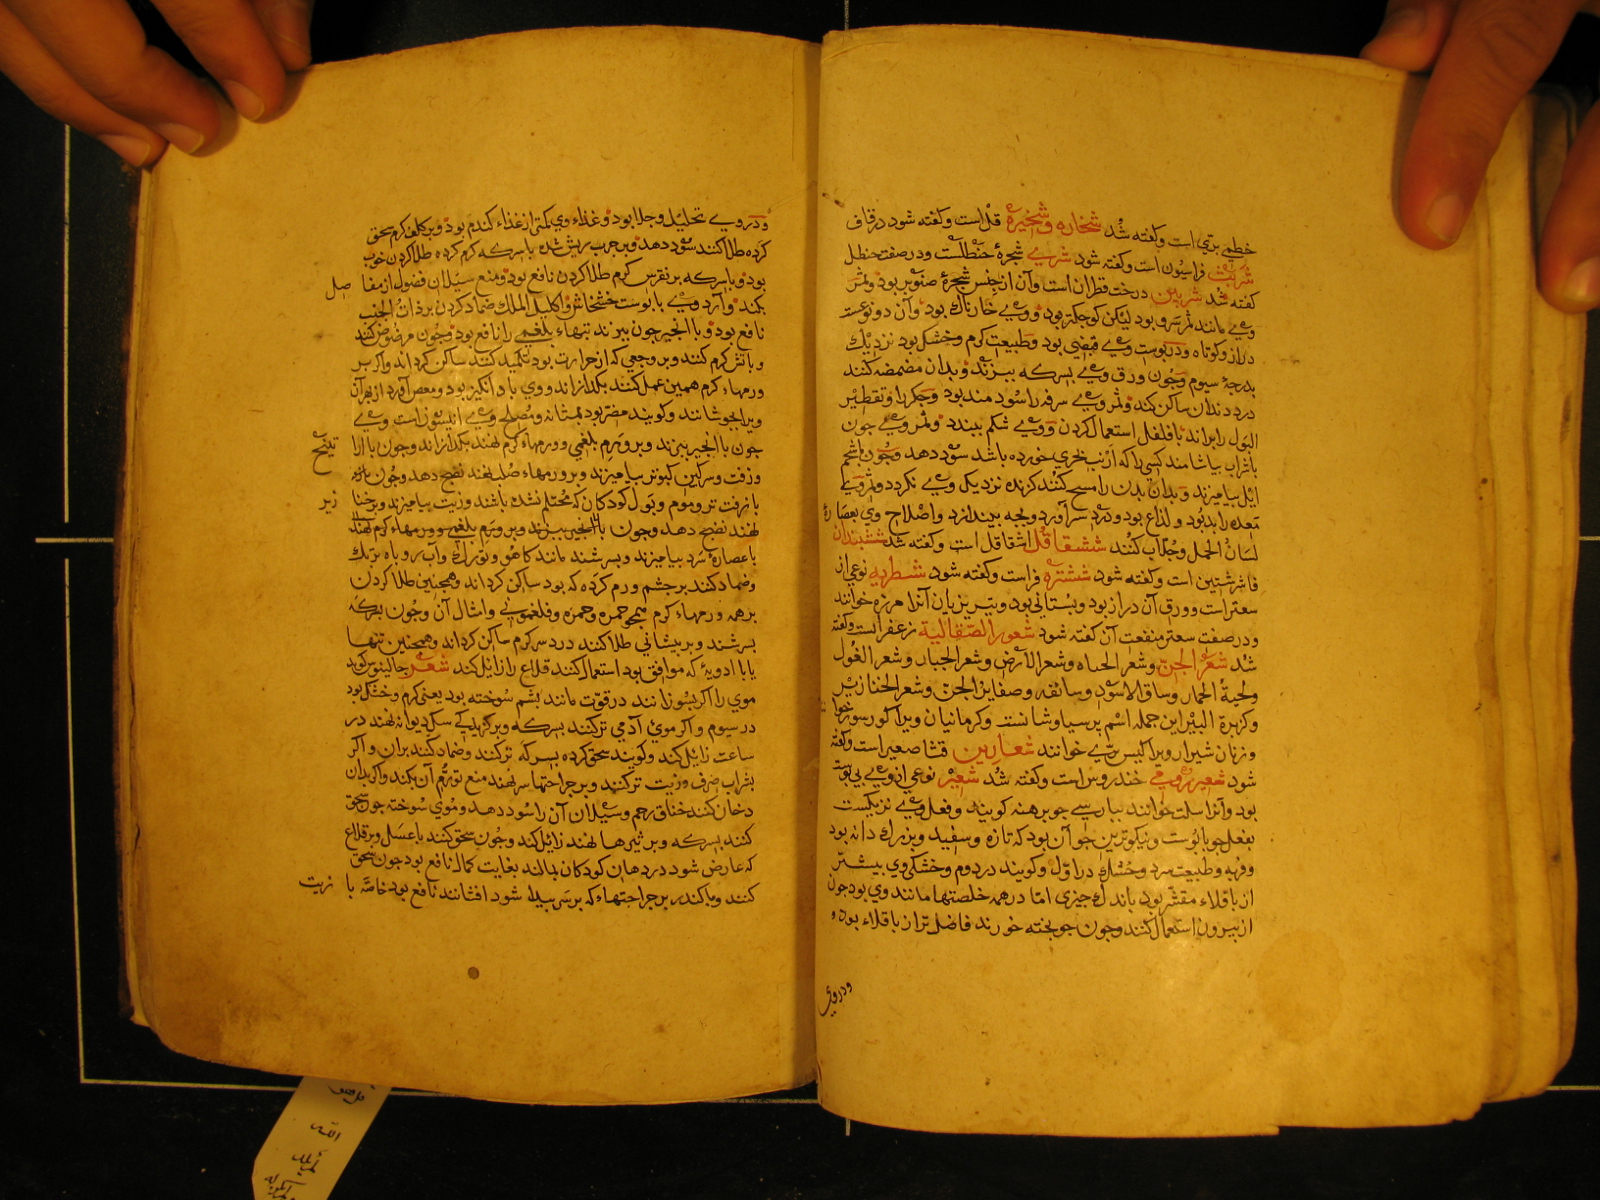 خطمی بری است وکفته شد شخاره وشخیره قلی است وکفته شود در قاف
شربث فراسیون است وکفته شود شری شجرهٔ حنظلست ودر صفت حنظل
کفته شد شربین درخت قطران است وآن از جنس شجرهٔ صنوبر بود وثمر
وی مانند ثمر سرو بود لیکن کوچکتر بود ووی خارناک بود وآن دو نوعست
دراز وکوتاه ودر پوست وی قبضی بود وطبیعت کرم وخشک بود نزدیک
بدرجهٔ سیوم وچون ورق وی بسرکه بپزند وبدان مضمضه کنند
درد دندان ساکن کند وثمر وی سرفه را سود مند بود وجکر را وتقطیر
البول را براند با فلفل استعمال کردن ووی شکم ببندد وثمر وی چون
باشراب بیاشامند کسی را که ارنب بحری خورده باشد سود دهد وچون باشحم
ایل بیامیزند وبدان بدن را مسح کنند کزنده نزدیک وی نکردد وثمر وی
معده را بد بود ولذاع بود ودرد سر آورد وبچه بیندازد واصلاح وی بعصاره
لسان الحمل وجلاب کنند ششقاقل اشقاقل است وکفته شد ششبندان
فاشرشتین است وکفته شود ششتره فراست وکفته شود شطریه نوعی از
سعتر است وورق آن دراز بود وبستانی بود وتبریزیان آنرا مرزه خوانند
ودر صفت سعتر منفعت آن کفته شود شعور الصقالبة زعفرانست وکفته
شد شعر الجن وشعر الحیاه وشعر الارض وشعر الجبال وشعر الغول
ولحیة الحمار وساق الاسود وساقه وصفایر الجن وشعر الخنازیر
وکزبرة البیر این جمله اسم پرسیاوشانست وکرمانیان ویرا کور سور خوانند
وزنان شیراز ویرا کیس پری خوانند شعارین قثا صغیر است وکفته
شود شعیر رومی خندروس است وکفته شد شعیر نوعی از وی بی پوست
بود وآنرا سلت خوانند بپارسی جو برهنه کویند وفعل وی نزدیکست
بفعل جو باپوست ونیکوترین جو آن بود که تازه وسفید وبزرک دانه بود
وفربه وطبیعت سرد وخشک در اول وکویند در دوم وخشکی وی بیشتر
از باقلاء مقشر بود باندک چیزی اما در همه خلصتها مانند وی بود چون
از بیرون استعمال کنند وچون جو پخته خورند فاضل تر از باقلاء بود و
ودروی
ودر وی تحلیل وجلا بود وغذاء وی کمتر از غذاء کندم بود وبر کلف کرم سحق
کرده طلا کنند سود دهد وبر جرب ریش شده باسرکه کرم کرده طلا کردن خوب
بود وباسرکه بر نقرس کرم طلا کردن نافع بود ومنع سیلان فضول از مفاصل
بکند وآرد وی باپوست خشخاش واکلیل الملک ضماد کردن بر ذات الجنب
نافع بود وبا انجیر چون بپزند تبهاء بلغمی را نافع بود وچون مرضوض کنند
وباتش کرم کنند وبر وجعی که از حرارت بود تکمید کنند ساکن کرداند واکر بر
ورمهاء کرم همین عمل کنند بکدازاند ووی باد انکیز بود ومغص آورد از بهر آن
ویرا بجوشانند وکویند مضر بود بمثانه ومصلح وی انیسون است وی
چون با انجیر بپزند وبر ورم بلغمی وورمهاء کرم نهند بکدازاند وچون با راتینج
وزفت وسرکین کبوتر بیامیزند وبر ورمهاء صلب نهند نضج دهد وچون
بازفت تر وموم وبول کودکان که محتلم نشده باشند وزیت بیامیزند وبر خنازیر
نهند نضج دهد وچون با انجیر بپزند وبر ورم بلغمی وورمهاء کرم نهند
باعصارهٔ سرد بیامیزند وبسرشند مانند کاهو وتورک وآب روباه تربک
وضماد کنند بر چشم ورم کرده که بود ساکن کرداند وهمچنین طلا کردن
بر همه ورمهاء کرم همچو حمره وجمره وفلغمونی وامثال آن وچون بسرکه
بسرشند وبر پیشانی طلا کنند درد سر کرم ساکن کرداند وهمچنین تنها
یا با ادویهٔ که موافق بود استعمال کنند قلاع را زائل کند شعر جالینوس کوید
موی را اکر بسوزانند در قوت مانند پشم سوخته بود یعنی کرم وخشک بود
در سیوم واکر موی آدمی تر کنند بسرکه وبر کزیدکی سک دیوانه نهند در
ساعت زائل کند وکویند سحق کرده بسرکه تر کنند وضماد کنند بران واکر
بشراب صرف وزیت تر کنند وبر جراحتها سر نهند منع تورم آن بکند واکر بدان
دخان کنند خناق رحم وسیلان آن را سود دهد وموی سوخته چون سحق
کنند بسرکه وبر بثرها نهند زائل کند وچون سحق کنند باعسل وبر قلاع
که عارض شود در دهان کودکان بمالند بغایت کمال نافع بود چون سحق
کنند وبا کندر بر جراحتهاء که بر سر پیدا شود افشانند نافع بود خاصه با زیت